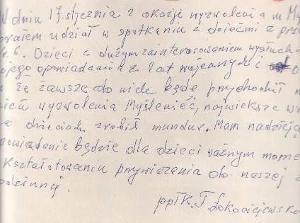 W dniu 17 stycznia z okazji wyzwolenia m. M
brałem udział w spotkaniu z dziećmi z prze
Dzieci z dużym zainteresowaniem wysłuch
ojego opowiadania z lat wojennych i
że zawsze do nich będę przychodił n
wyzwolenia Myślenic, największe wr
a dzieciach zrobił mundur. Mam nadzieję
owiadanie będzie dla dzieci ważnym mome
kształtowaniu do naszej
ppłk.